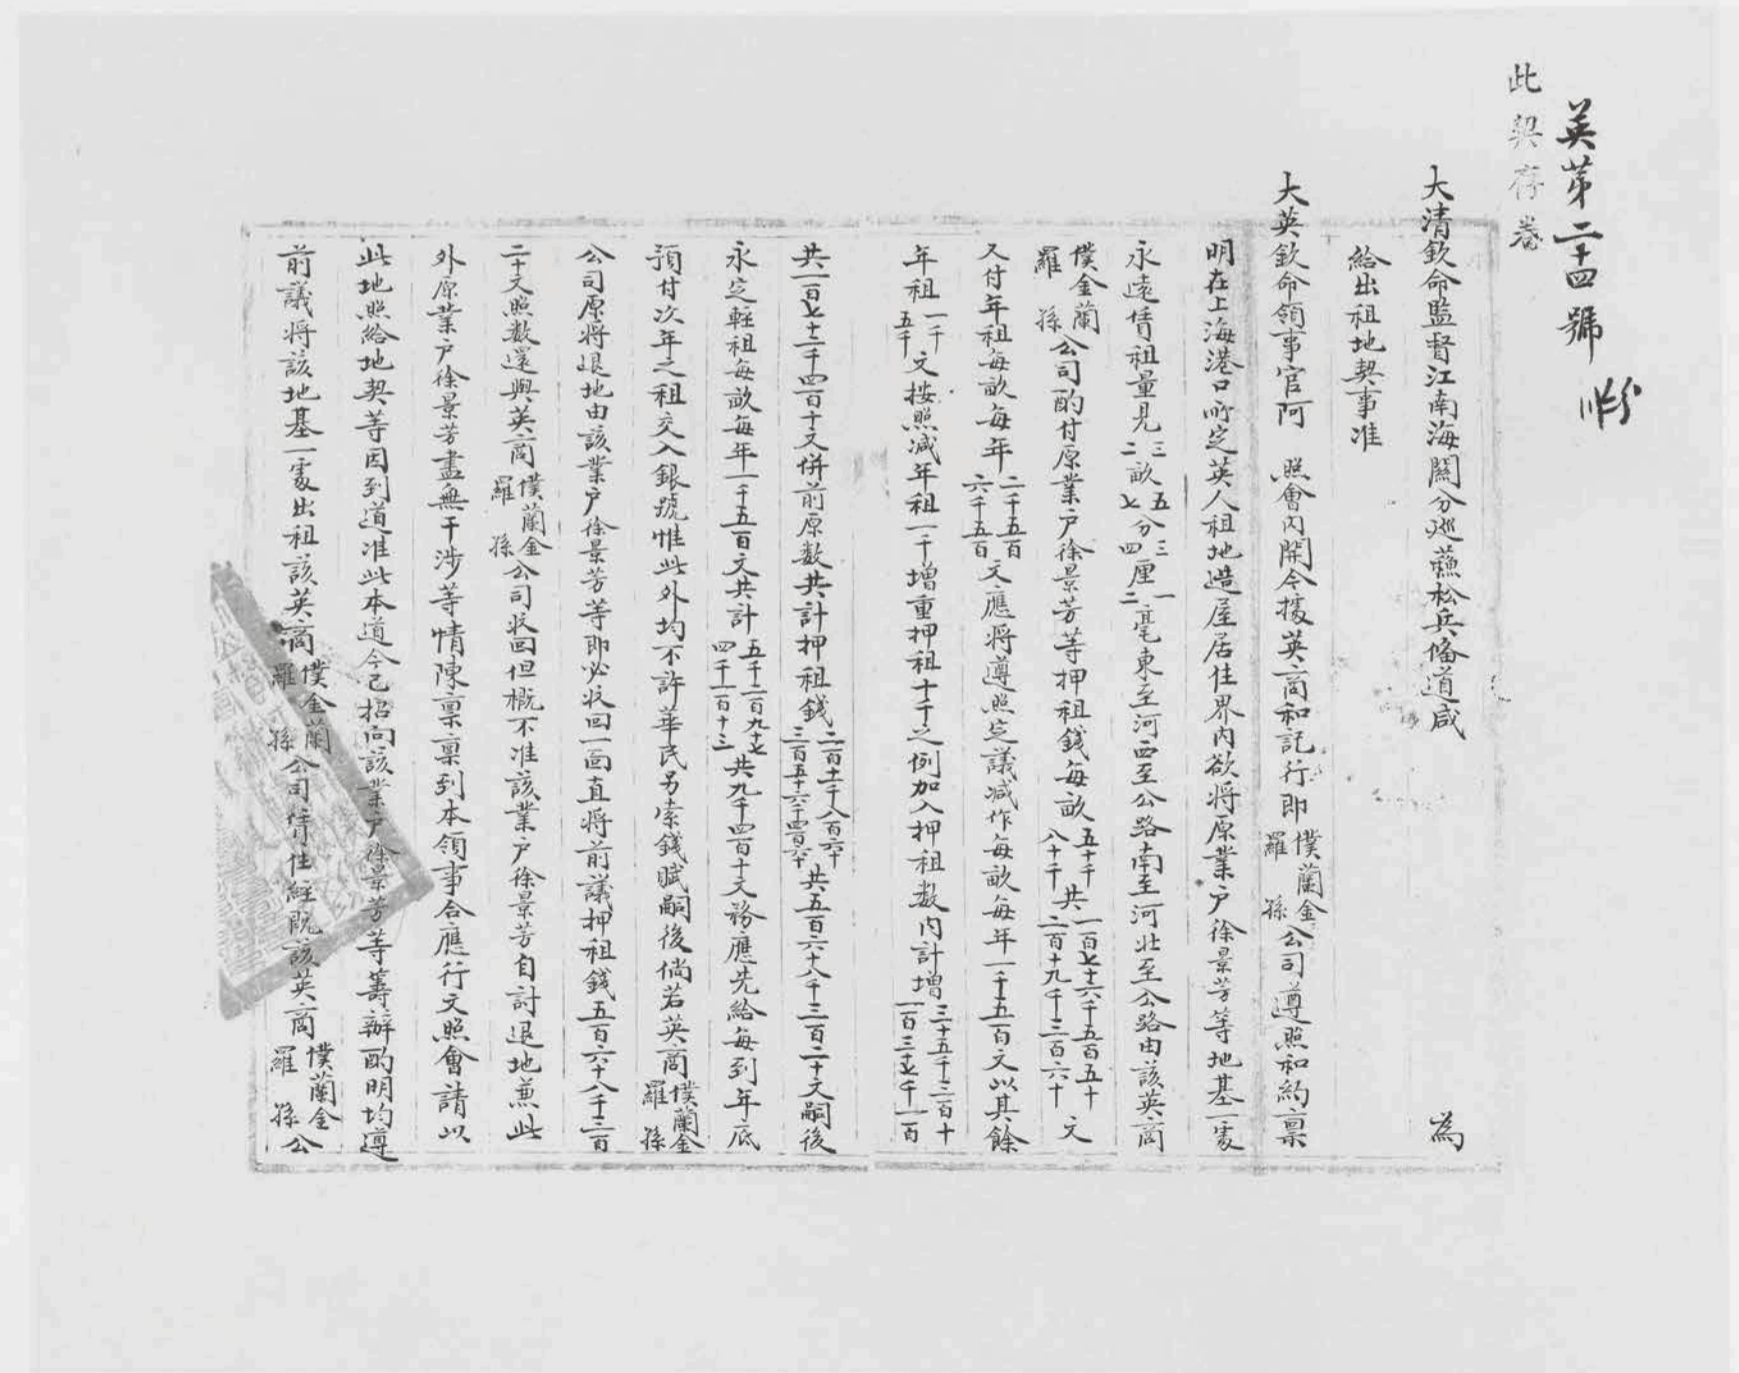 英苐二十四號
此契存卷
大清欽命監督江南海關分巡蘇松兵備道咸 為
給出租地契事准
大英欽命領事官阿 照會內開今據英商和記行即僕蘭金羅孫公司遵照和約稟
明在上海港口所定英人租地造屋居住界內欲將原業户徐景芳等地基一處
永遠賃租量見三畝五分三厘一毫二畝七分四厘二毫東至河西至公路南至河北至公路由該英商
僕金蘭羅孫公司酌付原業户徐景芳等押租錢每畝五十千八十千共一百七十六千五百五十二百十九千三百六十文
又付年租每畝每年二千五百六千五百文應將遵照定議減作每畝每年一千五百文以其餘
年租一千五千文按照減年租一千增重押租十千之例加入押租數內計增三十五千三百十一百三十七千一百
共一百七十二千四百十文併前原數共計押租錢二百十一千八百六十三百五十六千四百六十共五百六十八千三百二十文嗣後
永定輕租每畝每年一千五百文共計五千二百九十七四千一百十三共九千四百十文務應先給每到年底
預付次年之租交入銀號惟此外均不許華民另索錢賦嗣後倘若英商僕蘭金羅孫
公司原將退地由該業户徐景芳等即必收回一面直將前議押租錢五百六十八千三百
二十文照數還與英商僕蘭金羅孫公司收回但概不准該業户徐景芳自討退地兼此
外原業户徐景芳盡無干涉等情陳稟稟到本領事合應行文照會請以
此地照給地契等因到道准此本道今已招向該業户徐景芳等籌辦酌明均遵
前議將該地基一處出租該英商僕金蘭羅孫公司賃住經既該英商僕蘭金羅孫公